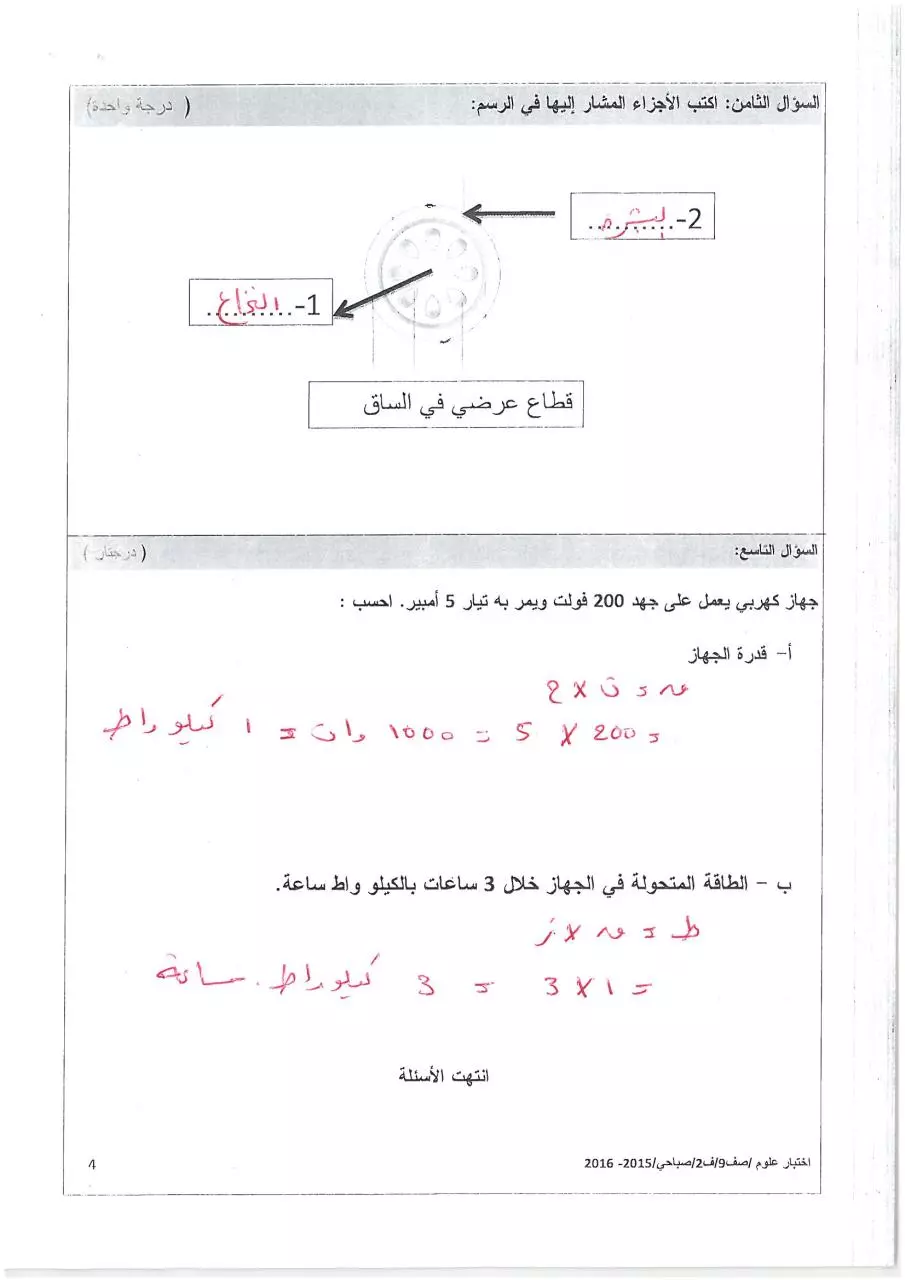 السؤال الثامن: اكتب الأجزاء المشار إليها في الرسم: ( درجة واحدة)
2- البشرة
1- النخاع
قطاع عرضي في الساق
السؤال التاسع: ( درجتان )
جهاز كهربي يعمل على جهد 200 فولت ويمر به تيار 5 أمبير. احسب :
أ- قدرة الجهاز
قد = ت × ج
= 200 × 5 = ١٠٠٠ وات = ١ كيلو واط
ب - الطاقة المتحولة في الجهاز خلال 3 ساعات بالكيلو واط ساعة.
ط = قد × ز
= ١ × 3 = 3 كيلو واط. ساعة
انتهت الأسئلة
اختبار علوم /صف9/ف2/صباحي/2015- 2016
4